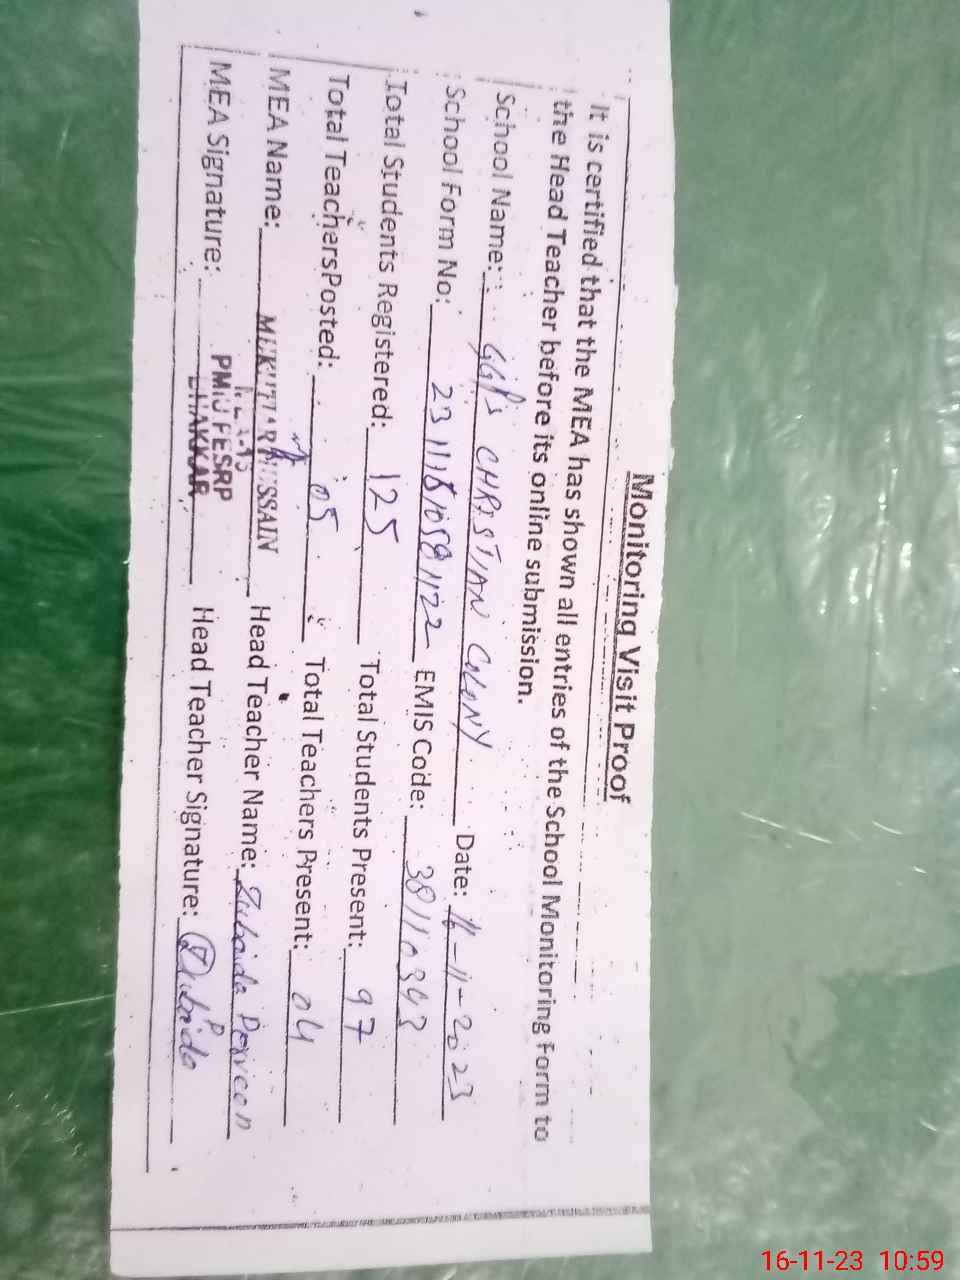 Monitoring Visit Proof
It is certified that the MEA has shown all entries of the School Monitoring Form to
the Head Teacher before its online submission.
School Name: GGPS CHRISTIAN COLONY Date: 16-11-2023
School Form No: EMIS Code: 38110343
Total Students Registered: 125 Total Students Present: 97
Total Teachers Posted: 05 Total Teachers Present: 04
MEA Name: MUKHTAR HUSSAIN Head Teacher Name: Zubaida Perveen
PMIU FESRP
BHAKKAR
MEA Signature: Head Teacher Signature: Zubaida P
16-11-23 10:59